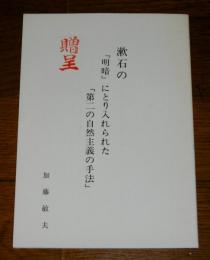 漱石の
『明暗』にとり入れられた
「第二の自然主義の手法」
加藤敏夫
贈呈